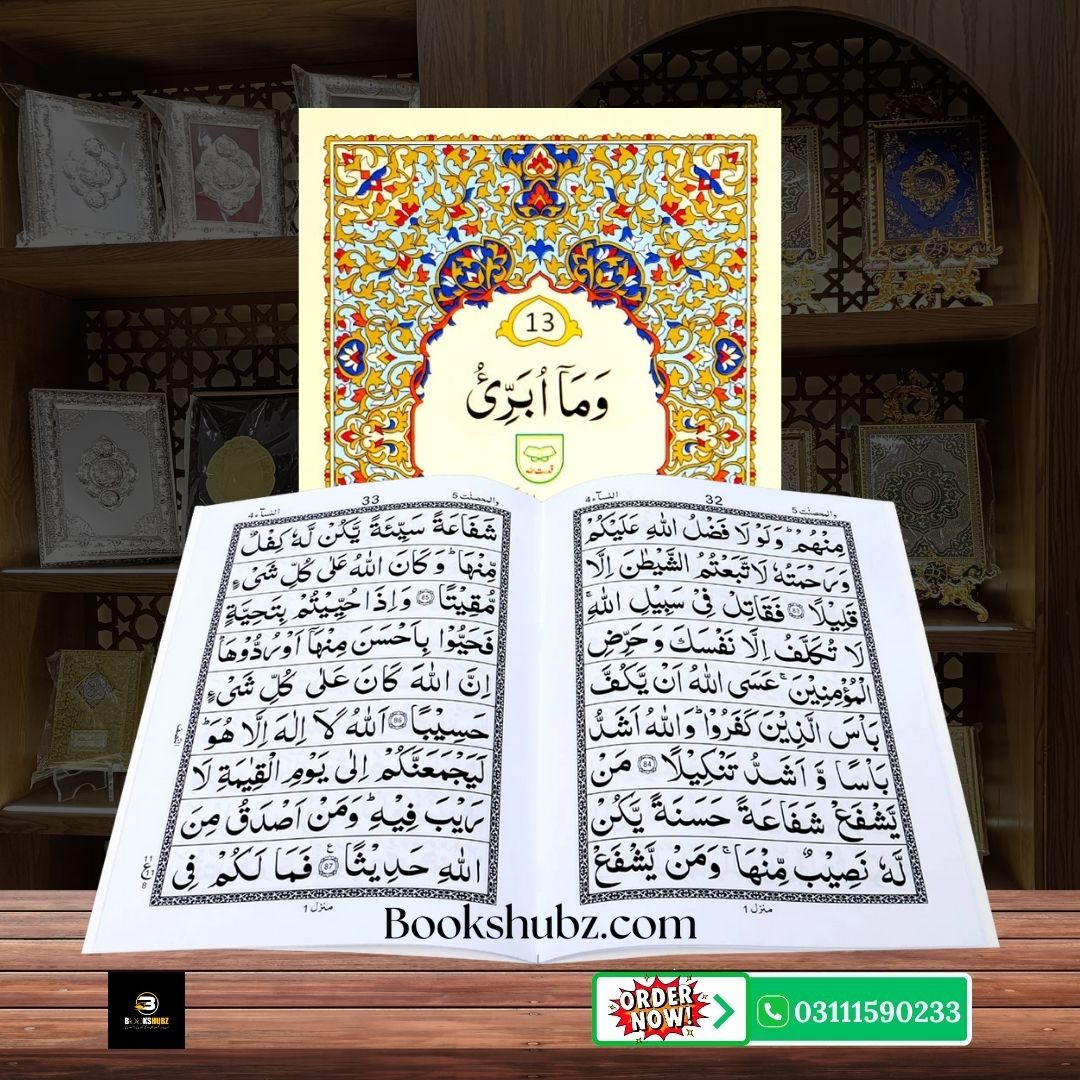 13
وَمَآ اُبَرِّئُ
قدرت الله
والمحصنٰت 5
32
النسآء 4
مِنْهُمْ ؕ وَلَوْ لَا فَضْلُ اللّٰهِ عَلَيْكُمْ
وَرَحْمَتُهٗ لَا تَّبَعْتُمُ الشَّيْطٰنَ اِلَّا
قَلِيْلًا 83 فَقَاتِلْ فِىْ سَبِيْلِ اللّٰهِ ۚ
لَا تُكَلَّفُ اِلَّا نَفْسَكَ وَ حَرِّضِ
الْمُؤْمِنِيْنَ ۚ عَسَى اللّٰهُ اَنْ يَّكُفَّ
بَاْسَ الَّذِيْنَ كَفَرُوْا ؕ وَاللّٰهُ اَشَدُّ
بَاْسًا وَّ اَشَدُّ تَنْكِيْلًا 84 مَنْ
يَّشْفَعْ شَفَاعَةً حَسَنَةً يَّكُنْ
لَّهٗ نَصِيْبٌ مِّنْهَا ۚ وَمَنْ يَّشْفَعْ
منزل 1
والمحصنٰت 5
33
النسآء 4
شَفَاعَةً سَيِّئَةً يَّكُنْ لَّهٗ كِفْلٌ
مِّنْهَا ؕ وَ كَانَ اللّٰهُ عَلٰى كُلِّ شَىْءٍ
مُّقِيْتًا 85 وَ اِذَا حُيِّيْتُمْ بِتَحِيَّةٍ
فَحَيُّوْا بِاَحْسَنَ مِنْهَآ اَوْ رُدُّوْهَا ؕ
اِنَّ اللّٰهَ كَانَ عَلٰى كُلِّ شَىْءٍ
حَسِيْبًا 86 اَللّٰهُ لَاۤ اِلٰهَ اِلَّا هُوَ ؕ
لَيَجْمَعَنَّكُمْ اِلٰى يَوْمِ الْقِيٰمَةِ لَا
رَيْبَ فِيْهِ ؕ وَمَنْ اَصْدَقُ مِنَ
اللّٰهِ حَدِيْثًا 87 فَمَا لَكُمْ فِى
11
ع
11
8
منزل 1
Bookshubz.com
B
BOOKSHUBZ
ORDER
NOW!
03111590233